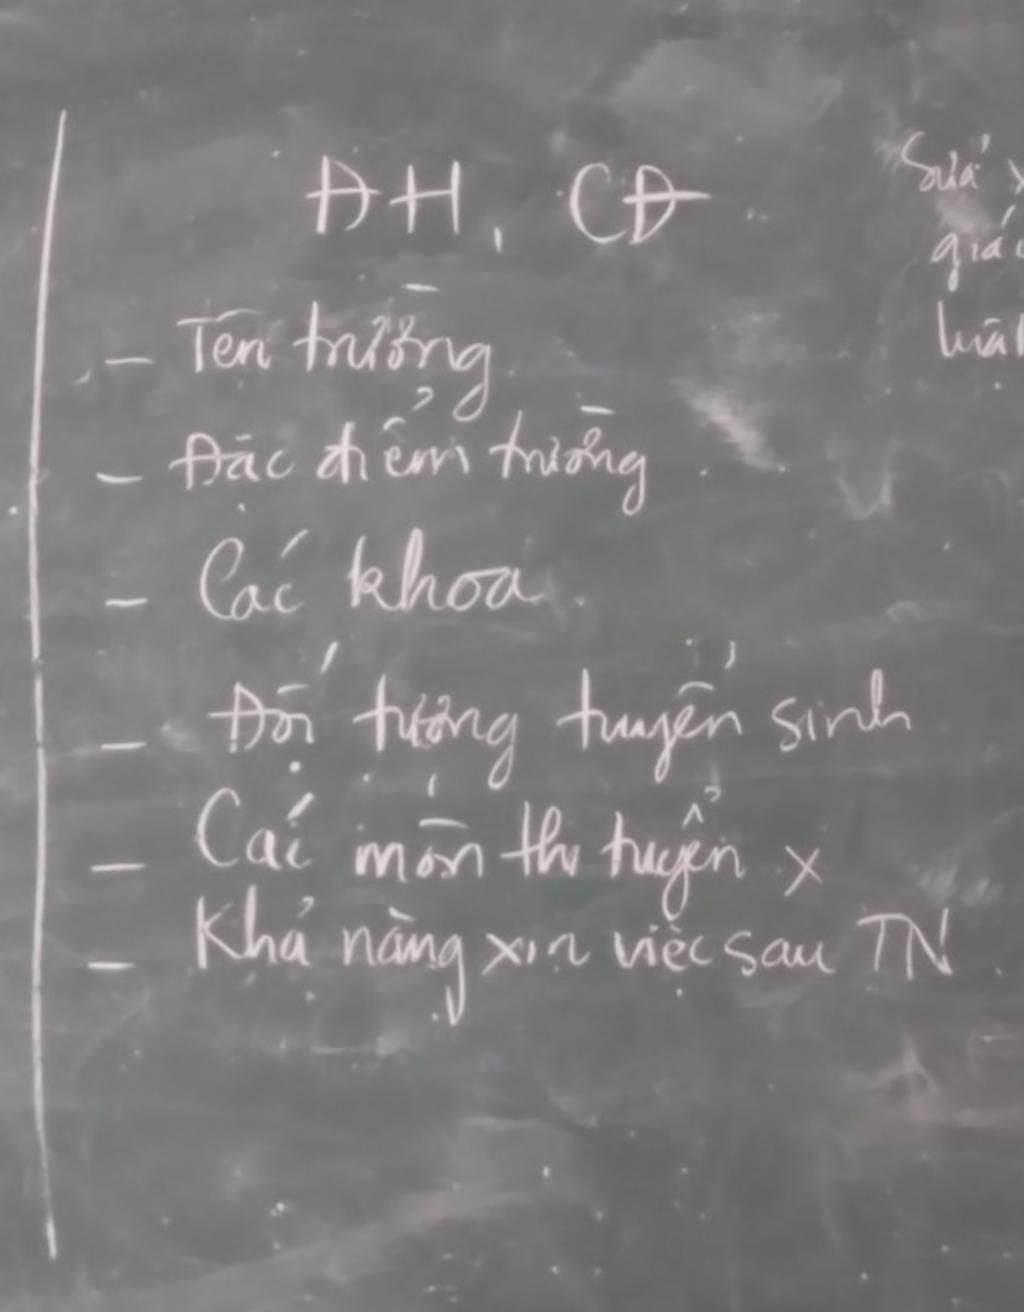 ĐH, CĐ
- Tên trường
- Đặc điểm trường
- Các khoa
- Đối tượng tuyển sinh
- Các môn thi tuyển x
- Khả năng xin việc sau TN